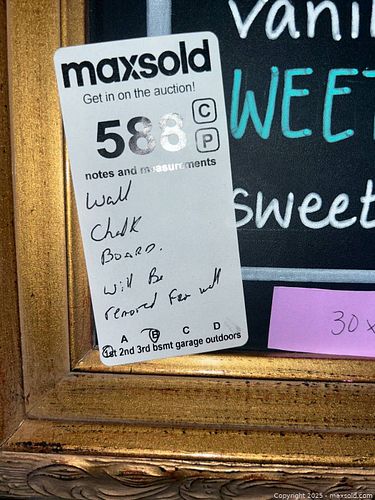 vanil
WEET
sweet
maxsold
Get in on the auction!
588
C
P
notes and measurements
Wall
Chalk
Board.
will Be
removed for wall
A B C D
1st 2nd 3rd bsmt garage outdoors
30x
Copyright 2025 - maxsold.com